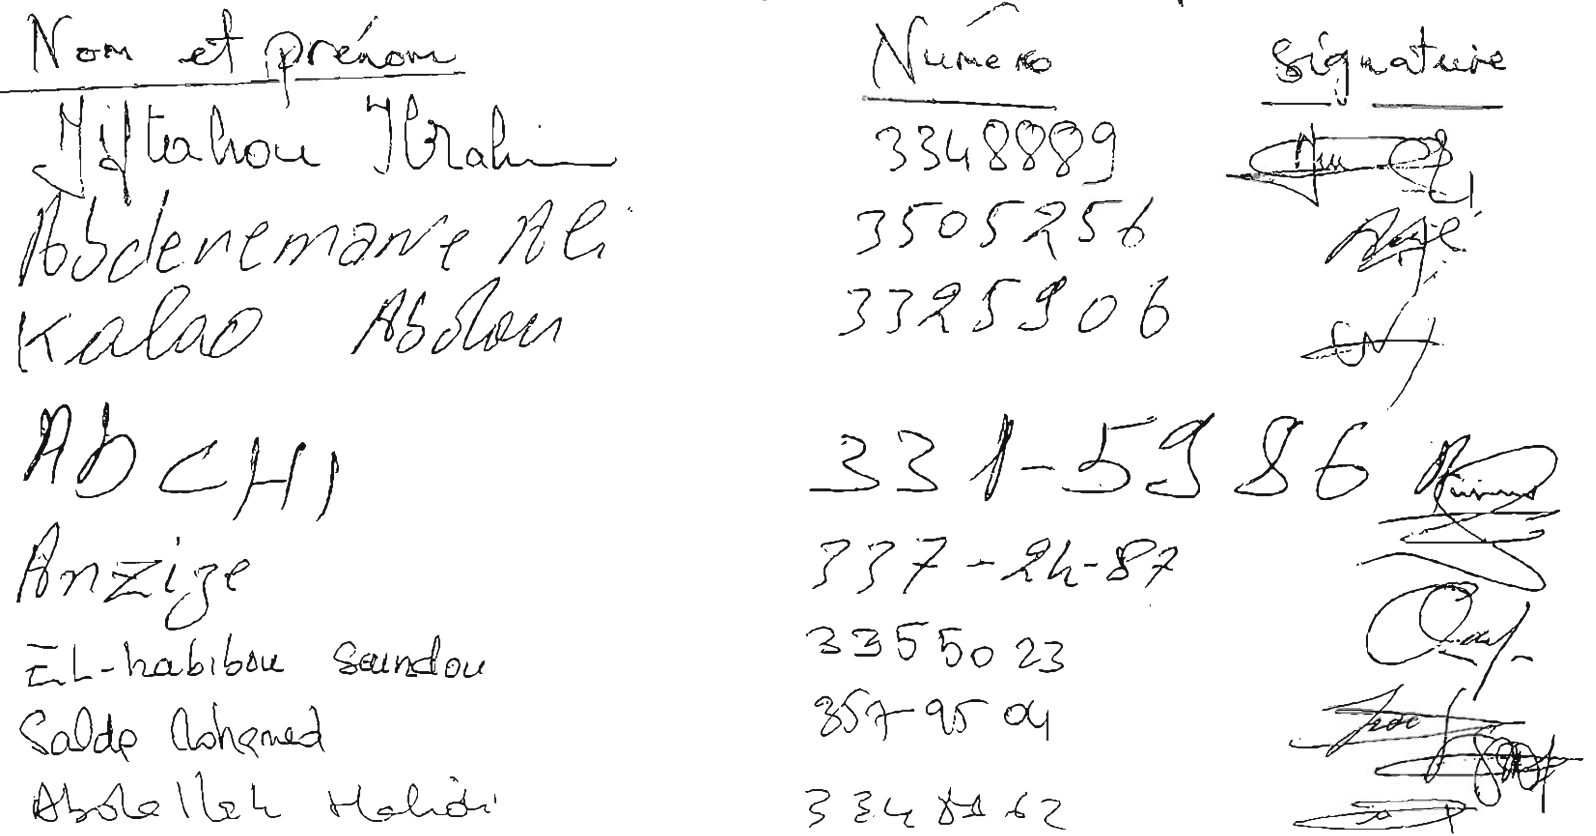 Nom et prénom Numéro signature
Miftahou Ibrahim 3348889
Abderemane Ali 3505256
Kalao Abdou 3325906
AbCHI 331-5986
Anzize 337-24-87
EL-habibou Soundou 3355023
Mohamed 357-95 04
Abdallah 334